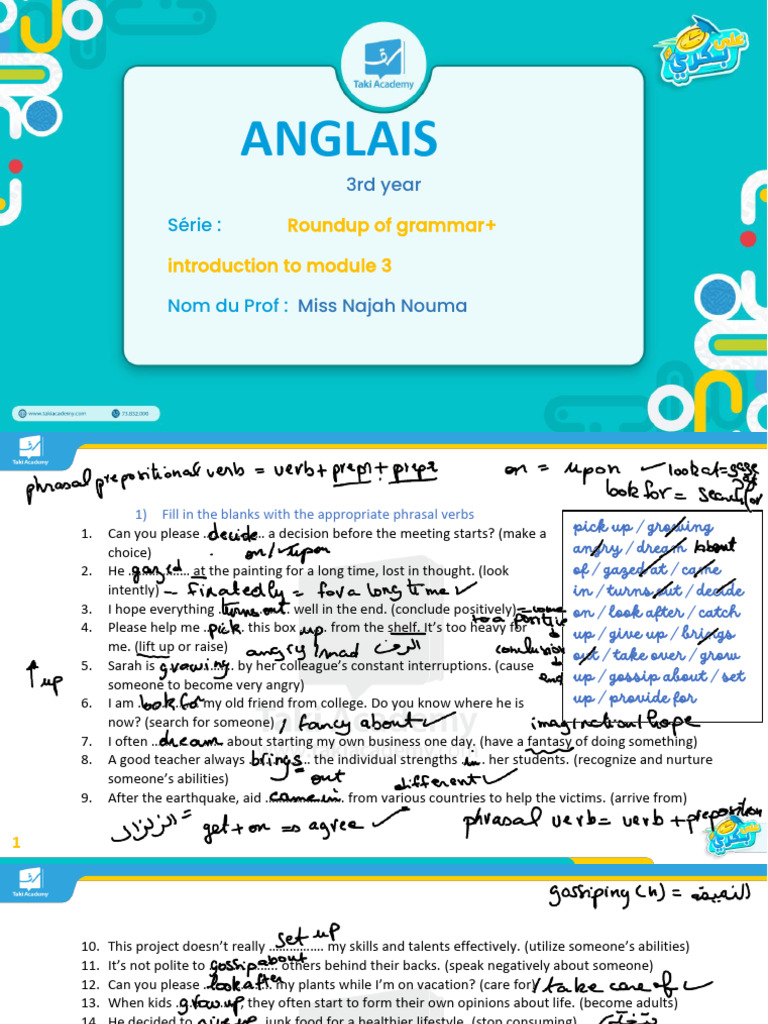 Taki Academy
على بكلّي
ANGLAIS
3rd year
Série : Roundup of grammar+
introduction to module 3
Nom du Prof : Miss Najah Nouma
www.takiacademy.com 73.832.000
Taki Academy
phrasal prepositional verb = verb + prep1 + prep2
on = upon look at = gaze at
look for = search for
1) Fill in the blanks with the appropriate phrasal verbs
1. Can you please ..decide.. a decision before the meeting starts? (make a
choice) on / upon
2. He .gazed............ at the painting for a long time, lost in thought. (look
intently) = for a long time
3. I hope everything .turns out. well in the end. (conclude positively) = come to a positive conclusion end
4. Please help me ..pick. this box .up. from the shelf. It's too heavy for
me. (lift up or raise) angry / mad
5. Sarah is .growing. by her colleague's constant interruptions. (cause
↑ up
someone to become very angry)
6. I am .look for my old friend from college. Do you know where he is
now? (search for someone) / fancy about
imagination / hope
7. I often ..dream.. about starting my own business one day. (have a fantasy of doing something)
8. A good teacher always .brings.. the individual strengths in.. her students. (recognize and nurture
someone's abilities) out different
9. After the earthquake, aid .came in. from various countries to help the victims. (arrive from)
الزلزال = get + on => agree
phrasal verb = verb + preposition
pick up / growing
angry / dream about
of / gazed at / came
in / turns out / decide
on / look after / catch
up / give up / brings
out / take over / grow
up / gossip about / set
up / provide for
Taki Academy
www.takiacademy.com
1
على بكلّي
Taki Academy
gossiping (n) = النميمة
10. This project doesn't really ..set up.. my skills and talents effectively. (utilize someone's abilities)
11. It's not polite to gossip about others behind their backs. (speak negatively about someone)
12. Can you please .look after my plants while I'm on vacation? (care for) / take care of
13. When kids .grow up they often start to form their own opinions about life. (become adults)
14. He decided to .give up. junk food for a healthier lifestyle. (stop consuming)